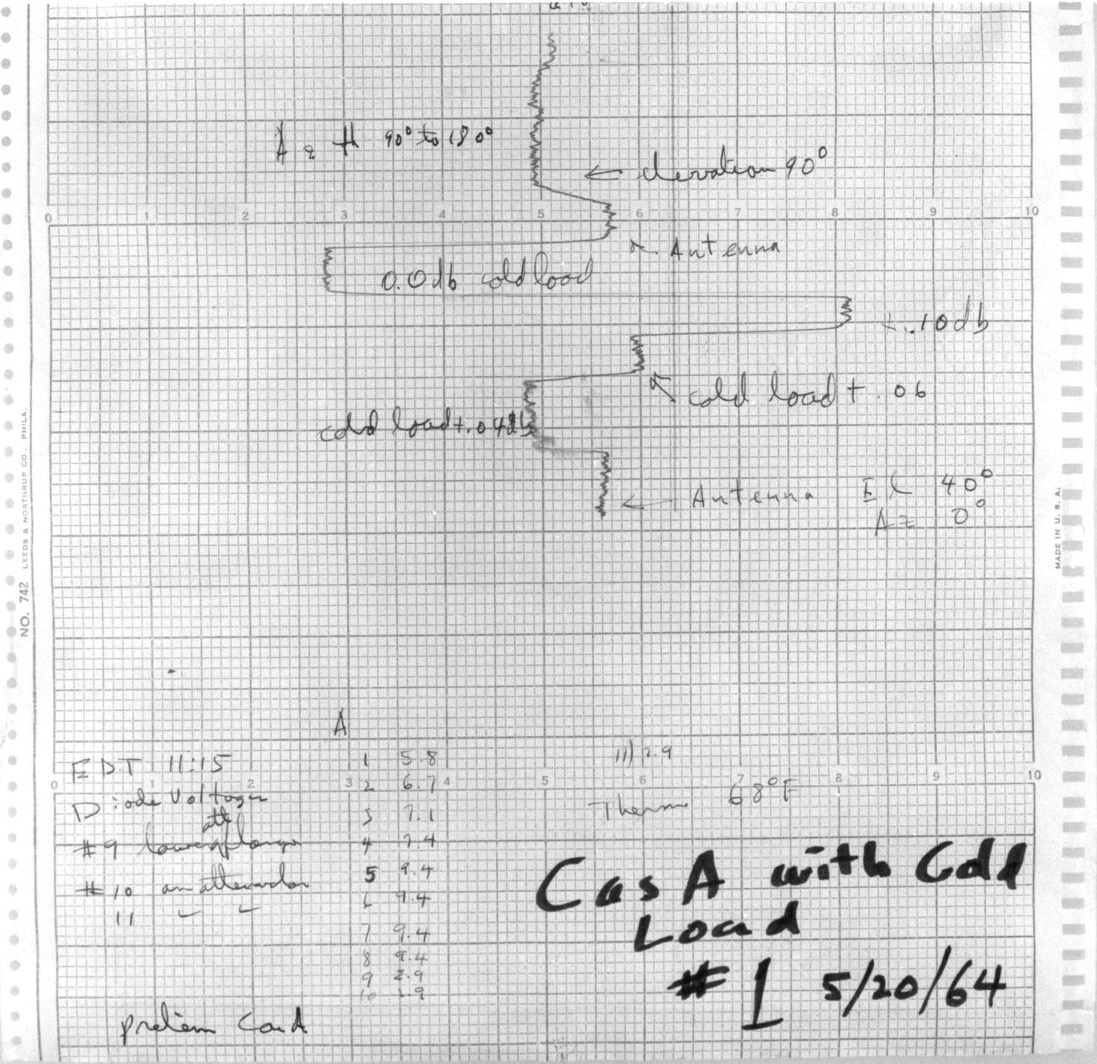 Az # 90° to 180°
← elevation 90°
0 1 2 3 4 5 6 7 8 9 10
Antenna
0.0db cold load
+.10db
cold load + .06
cold load +.04db
← Antenna El 40°
Az 0°
NO. 742 LEEDS & NORTHRUP CO. PHILA.
MADE IN U. S. A.
A
EDT 11:15
0 1 2 3 4 5 6 7 8 9 10
Diode Voltages
att
#9 lower flange
#10 on attenuator
11
1 5.8
2 6.7
3 7.1
4 7.4
5 9.4
6 9.4
7 9.4
8 9.4
9 2.9
10 2.9
11) 2.9
Therm 68°F
Cas A with Cold
Load
#1 5/20/64
prelim Cond